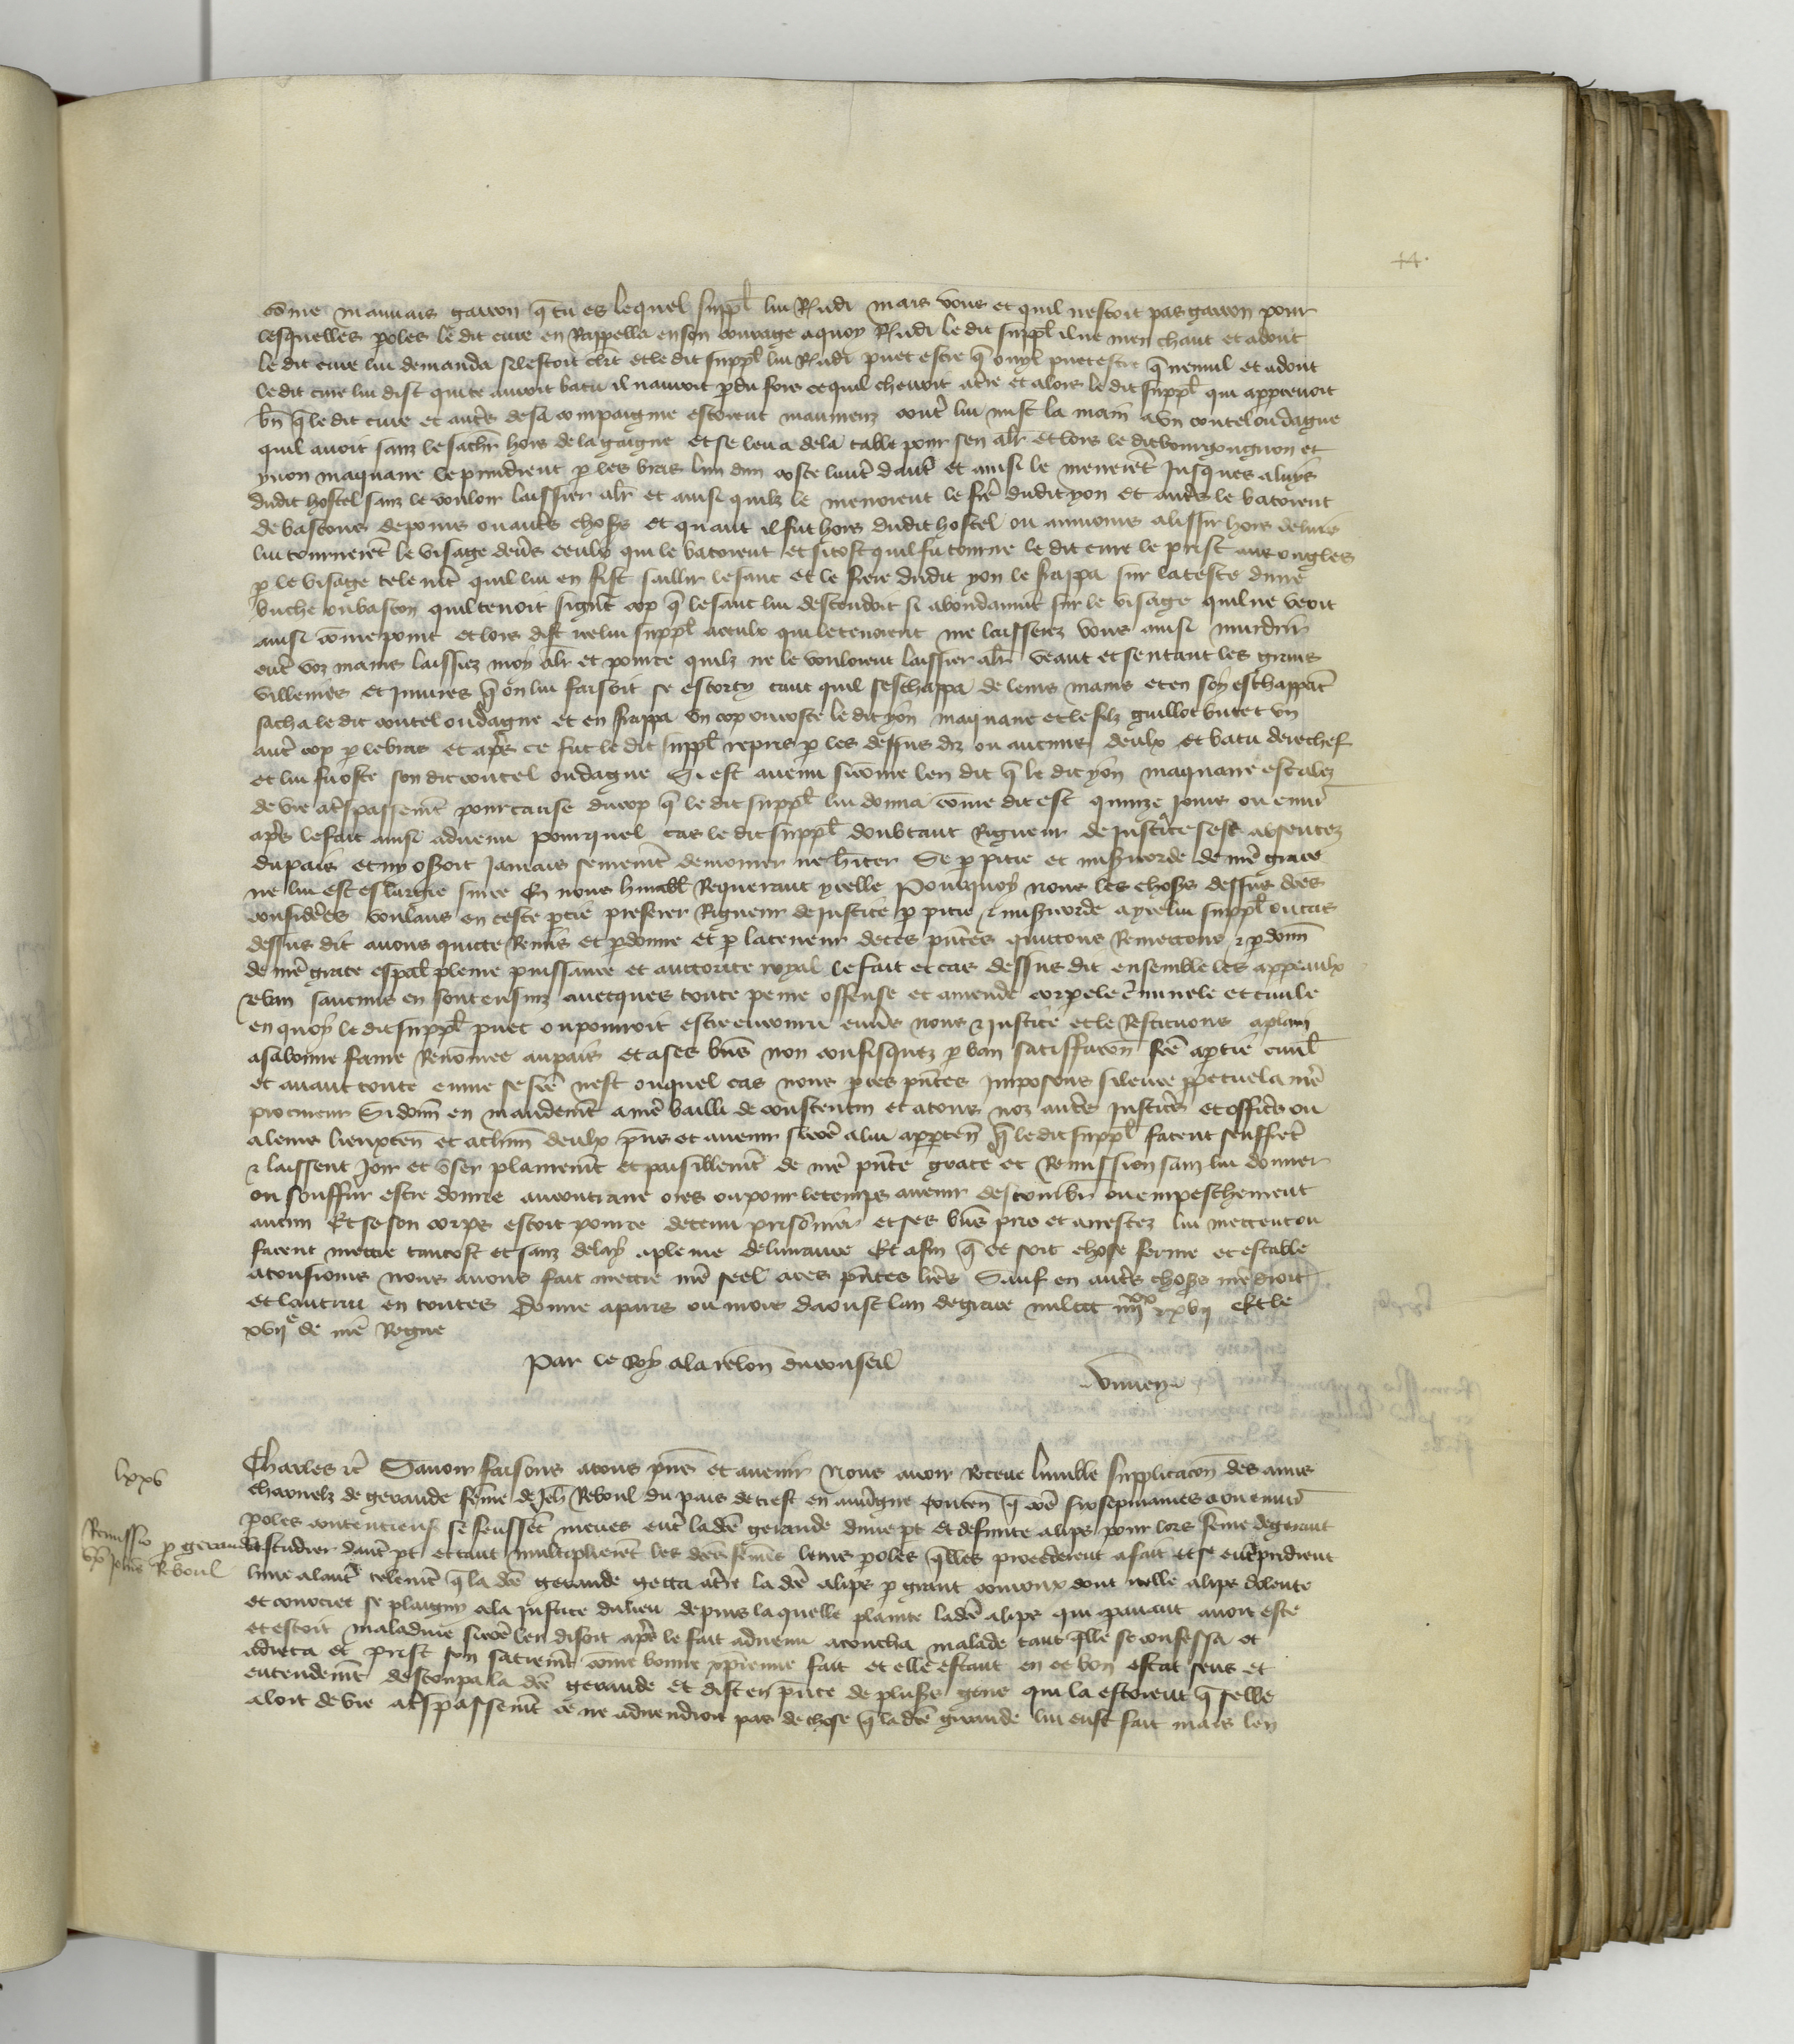 44.
cōme mauuais garcon q̄ tu es lequel suppl̄ lui Rn̄di mais vous et quil nestoit pas garcon pour
lesquelles ꝑoles le dit cure en Rappella en son courage aquoy Rn̄di le dit suppl̄ il ne men chaut et adont
le dit cure lui demanda sil estoit clerc et le dit suppl̄ lui Rn̄di puet estre q̄ ouyl puet estre q̄ nennil et adont
le dit cure lui dist qui te auroit batu il nauroit ꝑdu fors ce quil cherroit at̄re et alors le dit suppl̄ qui apperceuoit
bn̄ q̄ le dit cure et aut̄s de sa compaignie estoient mal meuz cont̄ lui mist la main a vn coutel ou dague
quil auoit sanz le sachier hors de la gaigne et se leua de la table pour sen alr̄ et lors le dit bourgoignon et
yuon maquare le prindrent ꝑ les bras lun dun coste laut̄ daut̄ et ainsi le menerēt Jusques a luys
dudit hostel sanz le vouloir laissier alr̄ et ainsi quilz le menoient le frere dudit yon et aut̄s le batoient
de bastons de poins ou aut̄s choses et quant il fut hors dudit hostel ou au moins a lissir hors de luis
lui tournerēt le visage deūs ceulx qui le batoient et si tost quil fu tourne le dit cure le prist aus ongles
ꝑ le visage telemēt quil lui en fist saillir le sanc et le frere dudit yon le frappa sur la teste dune
buche ou baston quil tenoit si gr̄nt cop q̄ le sanc lui descendoit si abondaumēt sur le visage quil ne veoit
ainsi cōme point et lors dist icelui suppl̄ a ceulx qui le tenoient me laisserez vous ainsi murdrir
entr̄ voz mains laissiez moy alr̄ et pource quilz ne le vouloient laissier alr̄ veant et sentant les grans
villenies et Iniures q̄ on lui faisoit se estorty tant quil seschappa de leurs mains et en soy eschappāt
sacha le dit coutel ou dague et en frappa vn cop ou coste le dit yon maquare et le filz guillot buret vn
aut̄ cop ꝑ le bras et ap̄s ce fut le dit suppl̄ repris ꝑ les dessus diz ou aucuns deulx et batu derechef
et lui fu oste son dit coutel ou dague Si est auenu si cōme len dit q̄ le dit yon maquare est alez
de vie at̄spassemēt pour cause du cop q̄ le dit suppl̄ lui donna cōme dit est quinze Jours ou enuirō
ap̄s le fait ainsi aduenu pour quel cas le dit suppl̄ doubtant Rigueur de Justice sest absentez
du pais et ny oseroit Jamais seuremēt demourer ne hīter Se ꝑ pitie et misericorde de nr̄e grace
ne lui est eslargie sur ce En nous humbl̄ Requerant ycelle Pourquoy nous les choses dessus dc̄es
consider̄es voulans en ceste ꝑtie preferer Rigueur de Justice ꝑ pitie ⁊ misericorde a ycelui suppl̄ ou cas
dessus dit auons quicte Remis et ꝑdonne et ꝑ la teneur de ces pn̄tes quictons Remectons ⁊ ꝑdonn̄
de nr̄e grace esp̄al pleine puissance et auctorite royal le fait et cas dessus dit ensemble les appeaulx
⁊ ban saucuns en sont ensuiz auecques toute peine offense et amende corporele c̄minele et ciuile
en quoy le dit suppl̄ puet ou pourroit estre encouru enuers nous ⁊ Justice et le Restituons aplain
a sa bonne fame Renōmee au pais et a ses biens non confisquez ꝑ ban satisffacōn fc̄e a ꝑtie ciuil̄
et auant toute euure se fc̄e nest ouquel cas nous ꝑ ces pn̄tes Imposons silence ꝑpetuel a nr̄e
procureur Si donn̄ en mandemēt a nr̄e bailli de coustentin et atous noz aut̄s Justic̄s et offic̄s ou
a leurs lieuxten̄ et ach̄un deulx pn̄s et auenir si cōe a lui apparten̄ q̄ le dit suppl̄ facent seuffrēt
⁊ laissent Joir et vser plainemēt et paisiblemēt de nr̄e pn̄te grace et Remission sanz lui donner
ou souffrir estre donne au contraire ores ou pour le temps auenir destourbr̄ ou empeschement
aucun Et se son corps estoit pource detenu prisōnier et ses biēs pris et arrestez lui mectent ou
facent mectre tantost et sanz delay a pleine deliurance Et afin q̄ ce soit chose ferme et estable
a tousiours nous auons fait mectre nr̄e seel a ces pn̄tes lr̄es Sauf en aut̄s choses nr̄e droit
et lautrui en toutes Donne a paris ou mois daoust lan de grace mil ccc iiijxx xvij Et le
xvije de nr̄e Regne
Par le Roy a la relon̄ du conseil
lxxv
Charles ⁊c̄ Sauoir faisons atous pn̄s et auenir Nous auoir Receue lumble supplicacōn des amis
charnelz de geraude fēme de Jeh̄ Reboul du pais de crest en auuīgne conten̄ q̄ cōe six sepmaines a ou enuirō
ꝑoles contencieus̄ se feussēt meues entr̄ la dc̄e geraude dune pt et deffuncte alips pour lors fēme de geraut
Remissio ꝑ geraud
vx̄ Joh̄is Reboul
lestudier daut̄ pt et tant multiplierēt les dc̄es fēmes leurs ꝑoles q̄lles procederent a fait et se entreprīdrent
lune a laut̄ telemēt q̄ la dc̄e geraude getta at̄re la dc̄e alips ꝑ grant courroux dont icelle alips dolente
et courciee se plaigny a la Justice du lieu depuis laquelle plainte la dc̄e alips qui ꝑauant auoit este
et estoit maladiue si cōe len disoit ap̄s le fait aduenu acoucha malade tant q̄lle se confessa et
adreca et prist son sacremēt cōme bonne xp̄ienne fait et elle estant en ce bon estat sens et
entendemēt descoupa la dc̄e geraude et dist en pn̄ce de pluss̄ gens qui la estoient q̄ selle
aloit de vie at̄spassemēt ce ne aduendroit pas de chose q̄ la dc̄e geraude lui eust fait mais len